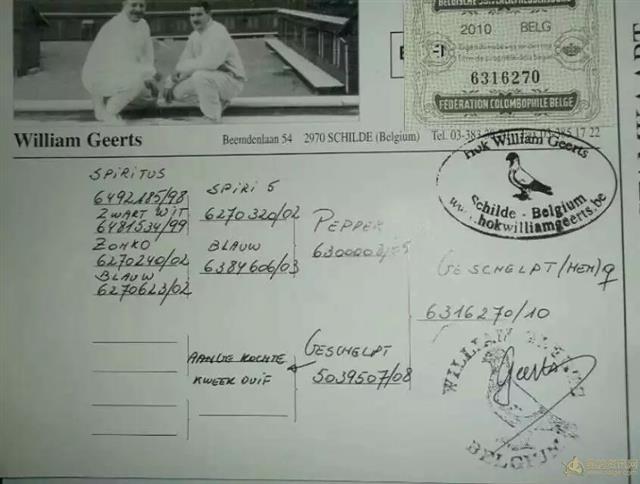 2010 BELG
6316270
FEDERATION COLOMBOPHILE BELGE
William Geerts
Beemdenlaan 54 2970 SCHILDE (Belgium) Tel. 03-383 Fax 03-385 17 22
Hok William Geerts
Schilde - Belgium
www.hokwilliamgeerts.be
SPIRITUS
6492185/98
ZWART WIT
6481534/99
ZONKO
6270240/02
BLAUW
6270623/02
SPIRI 5
6270320/02
BLAUW
6384606/03
PEPPER
GESCHELPT (HEN) ♀
6316270/10
AANGEKOCHTE
KWEEK DUIF
GESCHELPT
5039507/08
WILLIAM
Geerts
BELGIUM